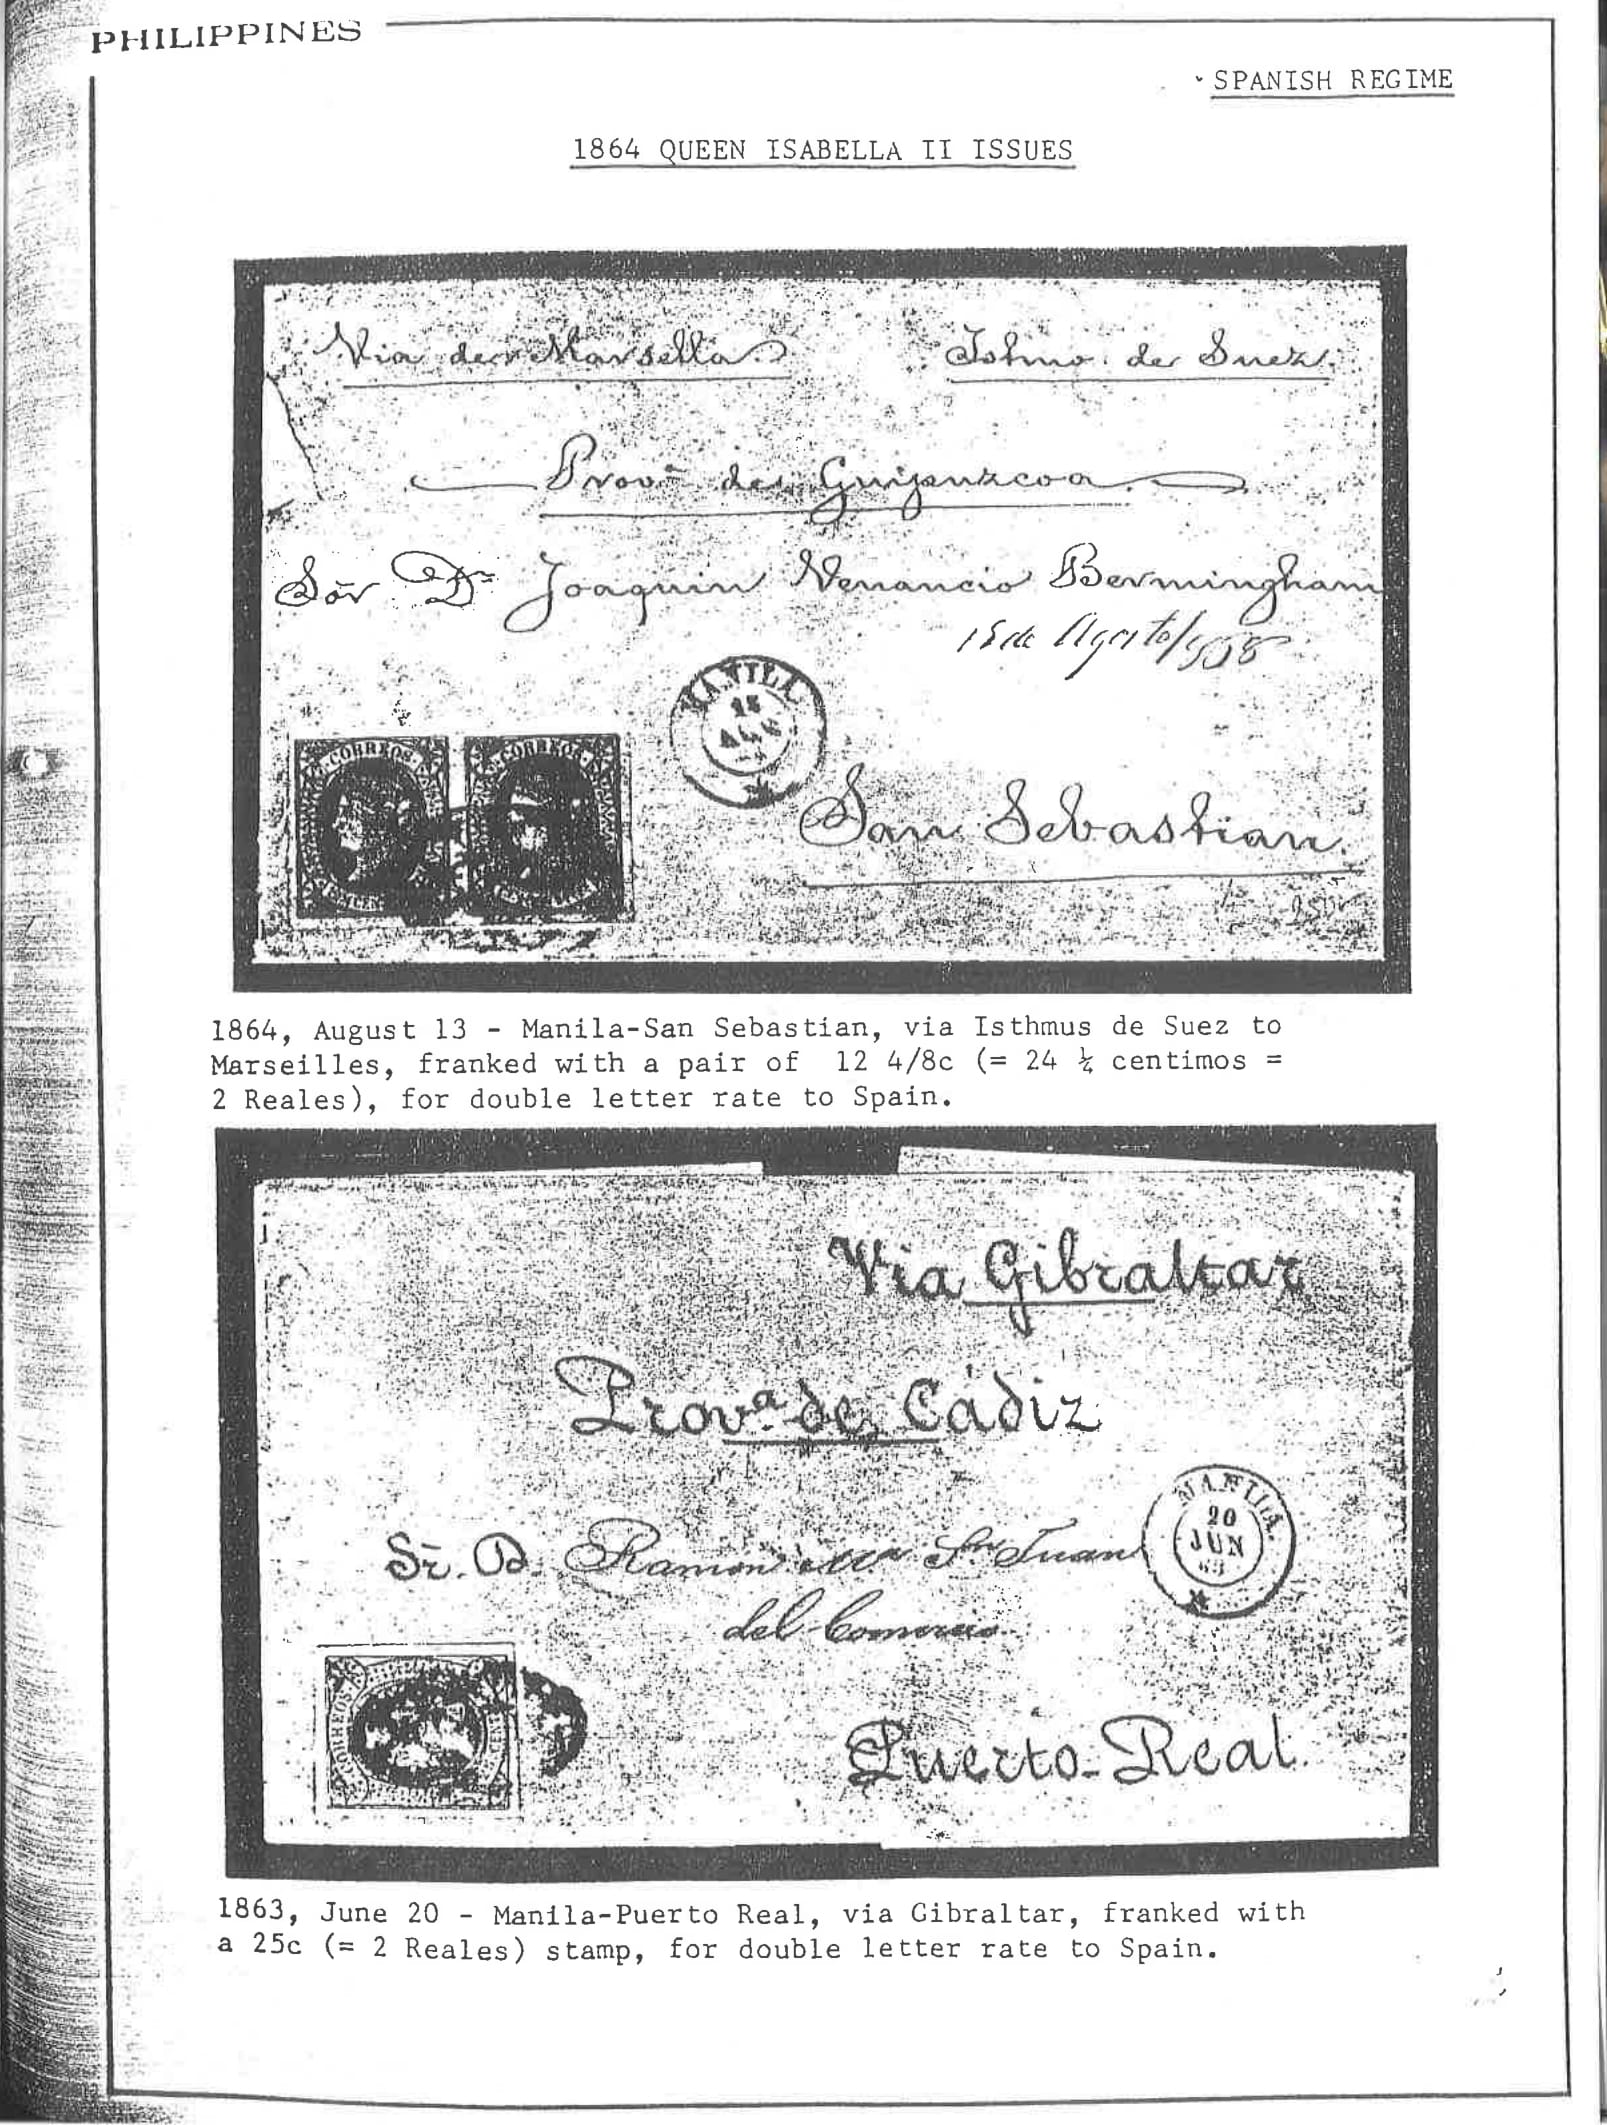 PHILIPPINES
SPANISH REGIME
1864 QUEEN ISABELLA II ISSUES
Via de Marsella
Istmo de Suez.
Prov.ª de Guipuzcoa.
Sõr Dⁿ Joaquin Venancio Bermingham
Agosto/
MANILA
CORREOS
CORREOS
San Sebastian.
1864, August 13 - Manila-San Sebastian, via Isthmus de Suez to
Marseilles, franked with a pair of 12 4/8c (= 24 ¼ centimos =
2 Reales), for double letter rate to Spain.
Via Gibraltar
Prov.ª de Cádiz
MANILA.
20
JUN
63
Sr. D. Ramón Mª Sn Juan
del Comercio
CORREOS
Puerto-Real.
1863, June 20 - Manila-Puerto Real, via Gibraltar, franked with
a 25c (= 2 Reales) stamp, for double letter rate to Spain.